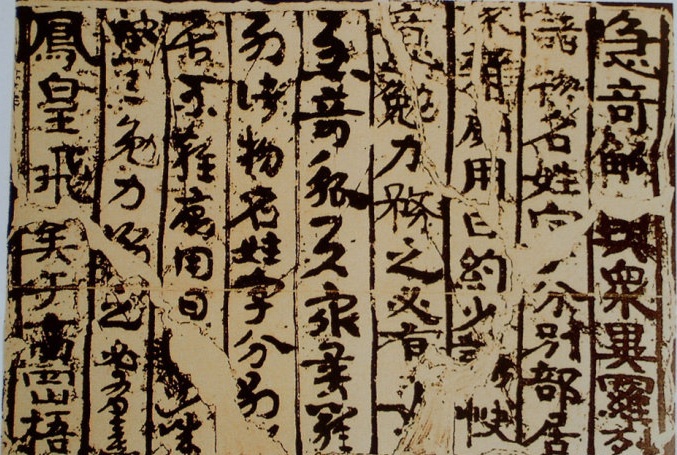 急奇觚與衆異羅列
諸物名姓字分別部居
不雜廁用日約少誠快
意勉力務之必有
急奇觚與衆異羅
列諸物名姓字分別
居不雜用日
意勉力務之必有喜
鳳皇飛矣于高岡梧